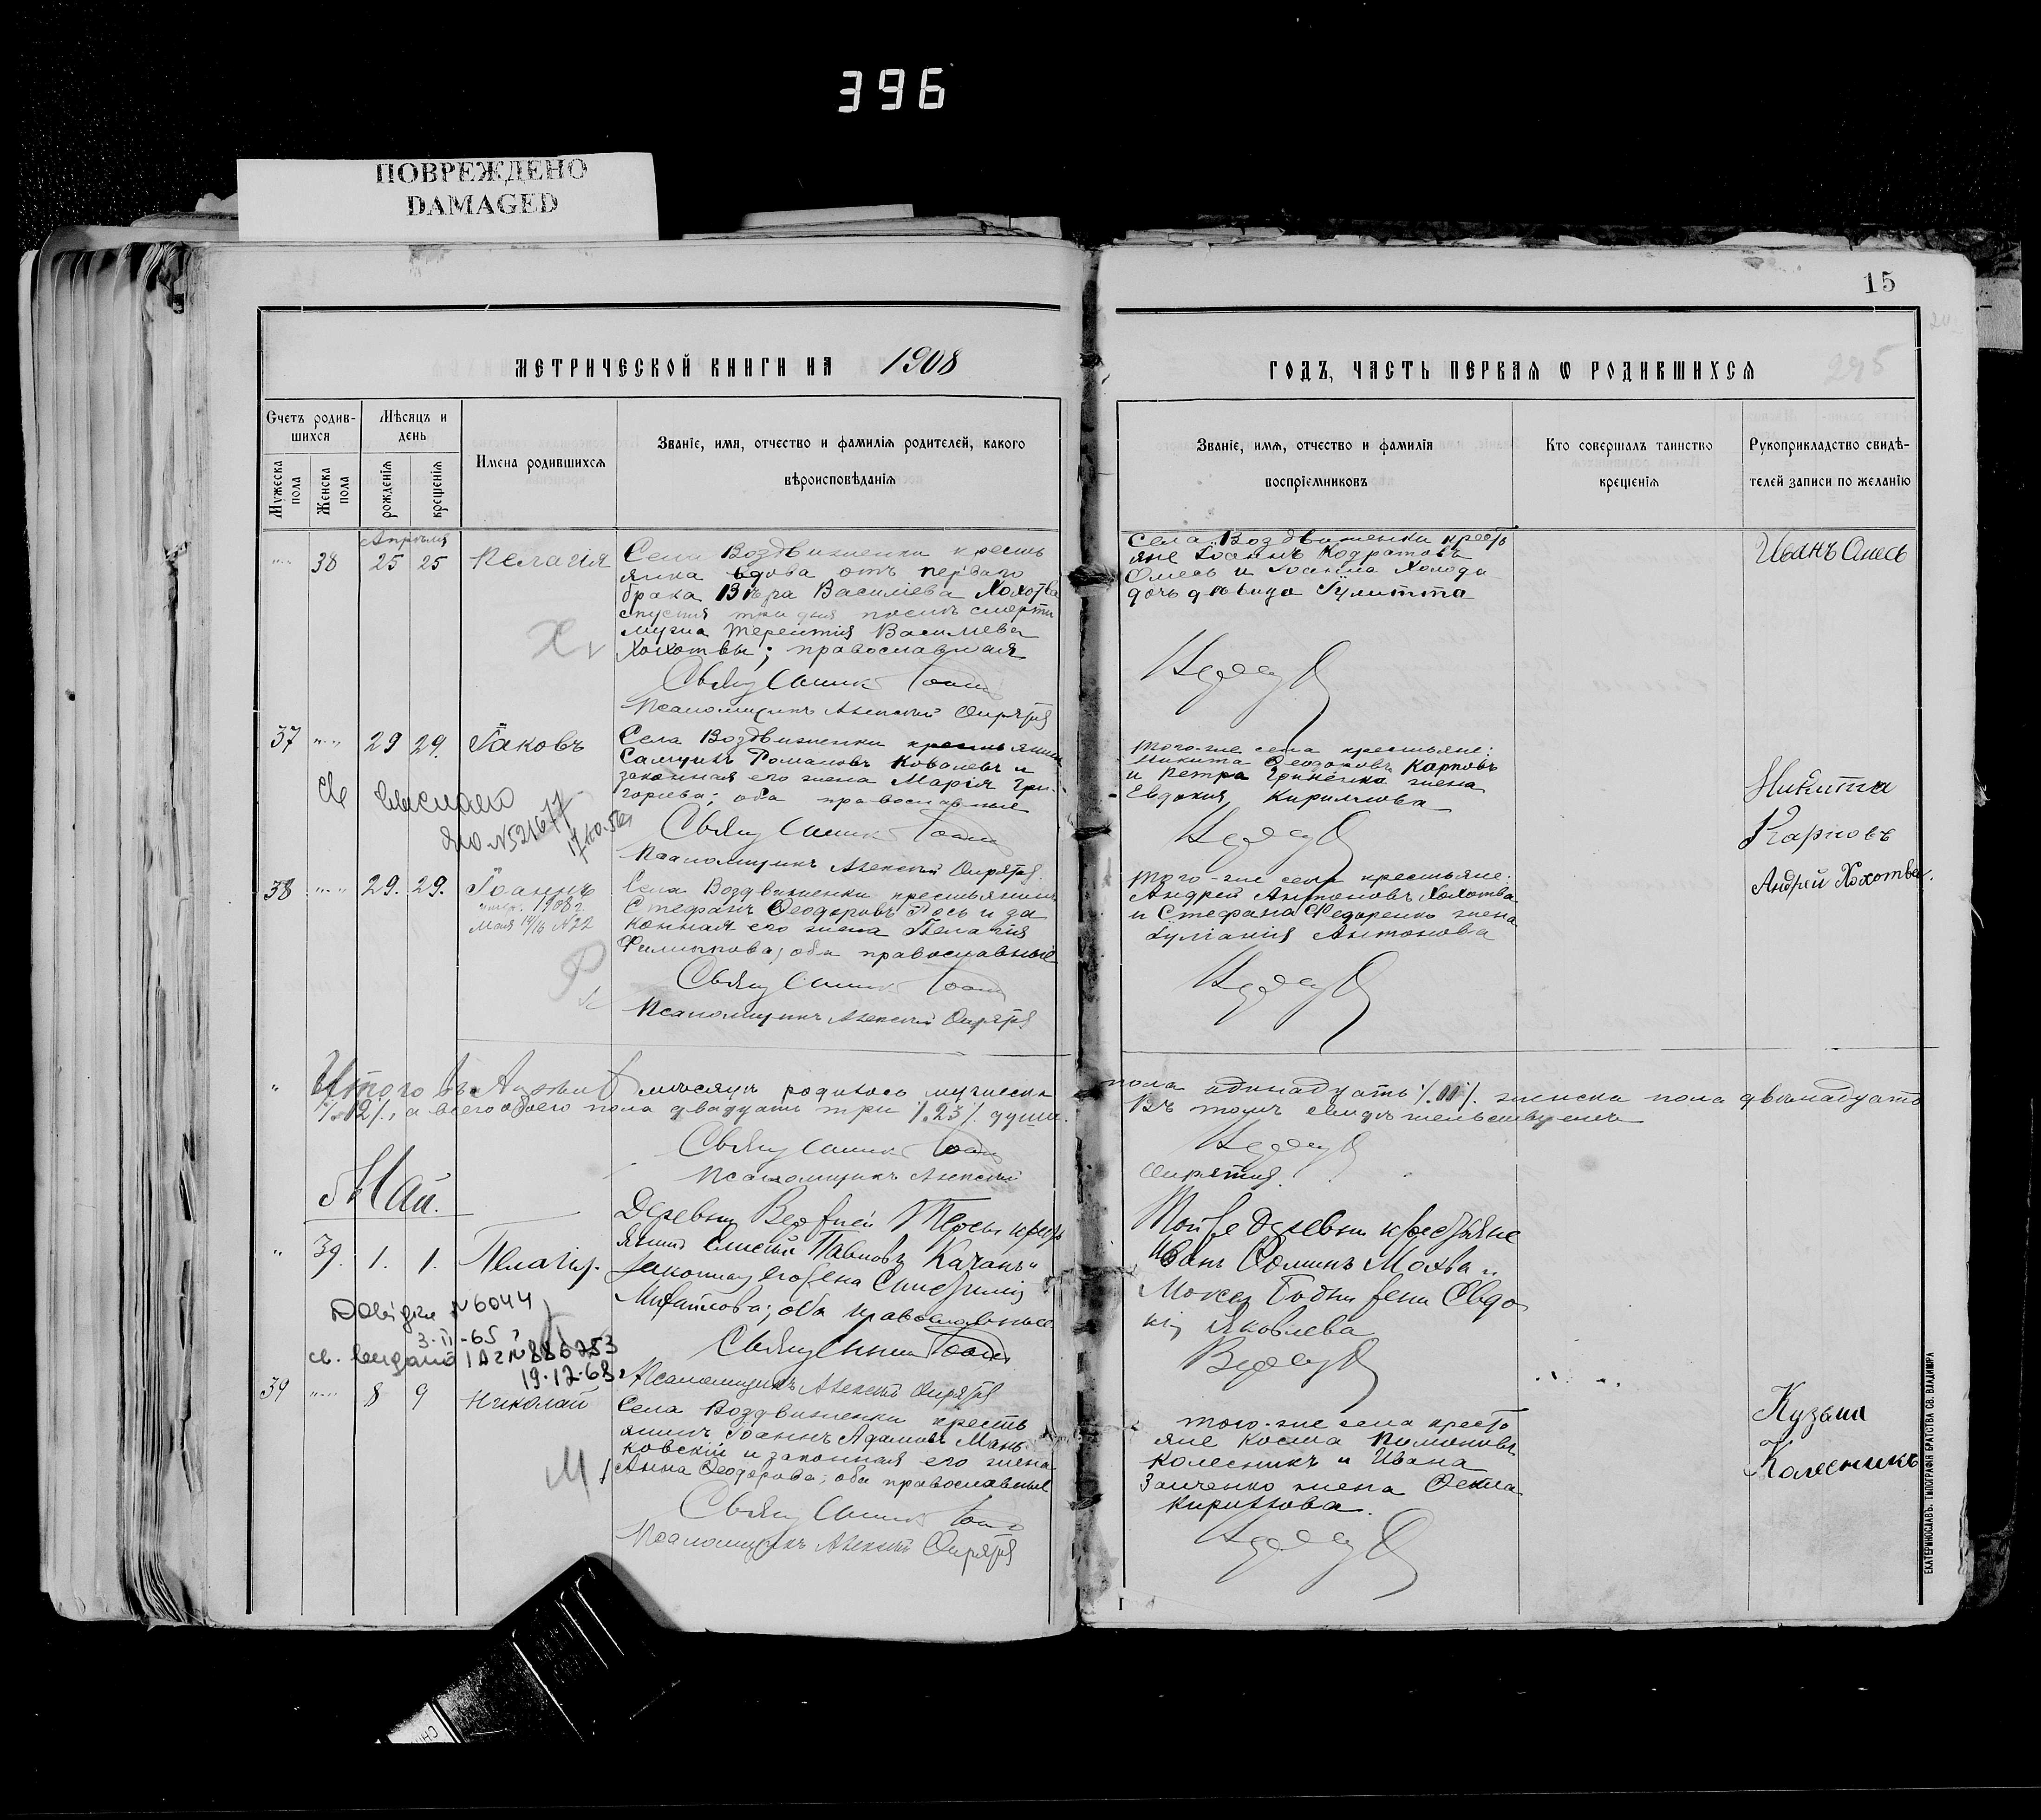 396
ПОВРЕЖДЕНО
DAMAGED
15
295
МЕТРИЧЕСКОЙ КНИГИ НА 1908
ГОДЪ, ЧАСТЬ ПЕРВАЯ Ѡ РОДИВШИХСЯ
Счетъ родив-
шихся
Мужеска
пола
Женска
пола
Мѣсяцъ и
день
рожденія
крещенія
Имена родившихся
Званіе, имя, отчество и фамилія родителей, какого
вѣроисповѣданія
Званіе, имя, отчество и фамилія
воспріемниковъ
Кто совершалъ таинство
крещенія
Рукоприкладство свидѣ-
телей записи по желанію
Апрѣля
38 25 25 Пелагія
Села Воздвиженки кресть
янка вдова отъ перваго
брака Вѣра Василіева Хохотва
спустя три дня послѣ смерти
мужа Терентія Василіева
Хохотвы; православная
Священникъ Іоаннъ
Псаломщикъ Алексій
Села Воздвиженки кресть
яне Іоаннъ Кодратовъ
Омесь и Іоанна Холода
дочь дѣвица Іулитта
Иванъ Омесь
37 29 29. Іаковъ
Села Воздвиженки крестьянинъ
Самуилъ Романовъ Ковалевъ и
законная его жена Марія Гри-
горіева; оба православные
Священникъ Іоаннъ
Псаломщикъ Алексій
Того-же села крестьяне:
Никита Ѳеодоковъ Карповъ
и Петра Гриненко жена
Евдокія Кириллова
Никита
Карповъ
св выслано
38 29. 29. Іоаннъ
1908 г.
Мая 14/16 №22
Села Воздвиженки крестьянинъ
Стефанъ Ѳеодоровъ Рось и за
конная его жена Пелагія
Филиппова; оба православные
Священникъ Іоаннъ
Псаломщикъ Алексій
Того-же села крестьяне:
Андрей Антоновъ Хохотва
и Стефана Федоренко жена
Іуліанія Антонова
Андрей Хохотва.
Итого въ Апрѣлѣ мѣсяцѣ родилось мужеска
пола одинадцать /.11/. женска пола двѣнадцать
/.12/., а всего обоего пола двадцать три /.23/. души.
Въ томъ свидѣтельствуемъ
Священникъ Іоаннъ
Псаломщикъ Алексій
Май.
39. 1. 1. Пелагія.
Деревни Верхней Терсы кресть
янинъ Елисей Павловъ Качанъ и
законная его жена
Михайлова; оба православные
Священникъ Іоаннъ
Псаломщикъ Алексій
Той же деревни крестьяне
Мохва и
жена Евдо
кія Яковлева
№6044
3-II-65
19.12.68
39 8 9 Николай
Села Воздвиженки кресть
янинъ Іоаннъ Адамовъ Мань
ковскій и законная его жена
Анна Ѳеодорова; оба православные
Священникъ Іоаннъ
Псаломщикъ Алексій
Того-же села кресть
яне Косма Пимоновъ
Колесникъ и Ивана
Заиченко жена Ѳекла
Кириллова.
Кузьма
Колесникъ
ЕКАТЕРИНОСЛАВЪ. ТИПОГРАФІЯ БРАТСТВА СВ. ВЛАДИМІРА